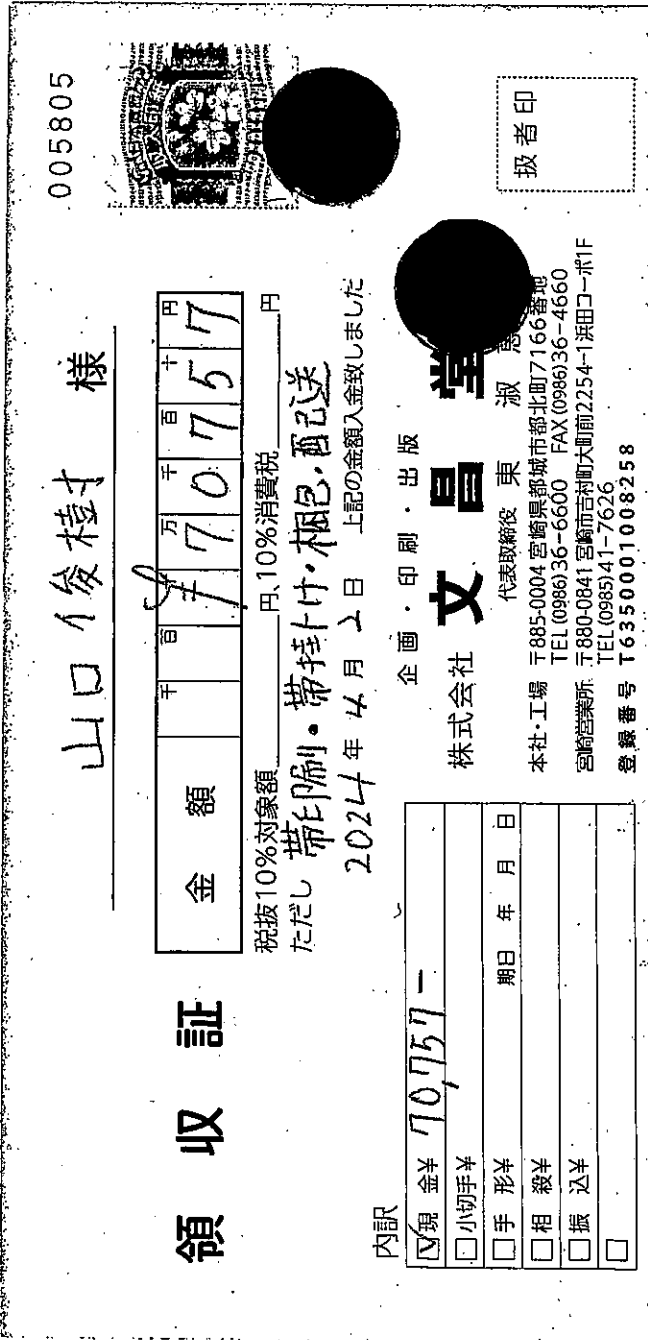 005805
領収証
山口俊樹 様
金額 千 百 十 万 千 百 十 円
¥70757
税抜10%対象額 円、10%消費税 円
ただし 帯印刷・帯掛け・梱包・配送
2024年4月2日 上記の金額入金致しました
内訳
☑現金¥ 70,757-
□小切手¥
□手形¥ 期日 年 月 日
□相殺¥
□振込¥
□
企画・印刷・出版
株式会社 文昌堂
代表取締役 東 淑
本社・工場 〒885-0004 宮崎県都城市都北町7166番地
TEL (0986)36-6600 FAX (0986)36-4660
宮崎営業所 〒880-0841 宮崎市吉村町大町前2254-1浜田コーポ1F
TEL (0985)41-7626
登録番号 T6350001008258
扱者印